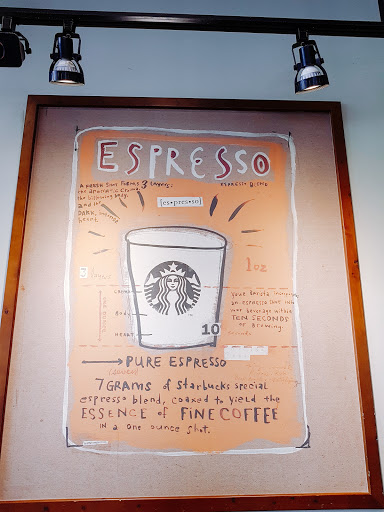 ESPRESSO
A FRESH SHOT FORMS 3 LAYERS:
ESPRESSO BLEND
the dramatic crema,
the billowing body,
and the
DARK, intense
heart
[es•pres•so]
3 layers
1oz
CREMA
BODY
HEART
your barista incorporates
an ESPRESSO SHOT into
your beverage within
TEN SECONDS
of BREWING.
10
seconds
PURE ESPRESSO
7 GRAMS of Starbucks special
espresso blend, coaxed to yield the
ESSENCE of FINE COFFEE
IN a one ounce shot.